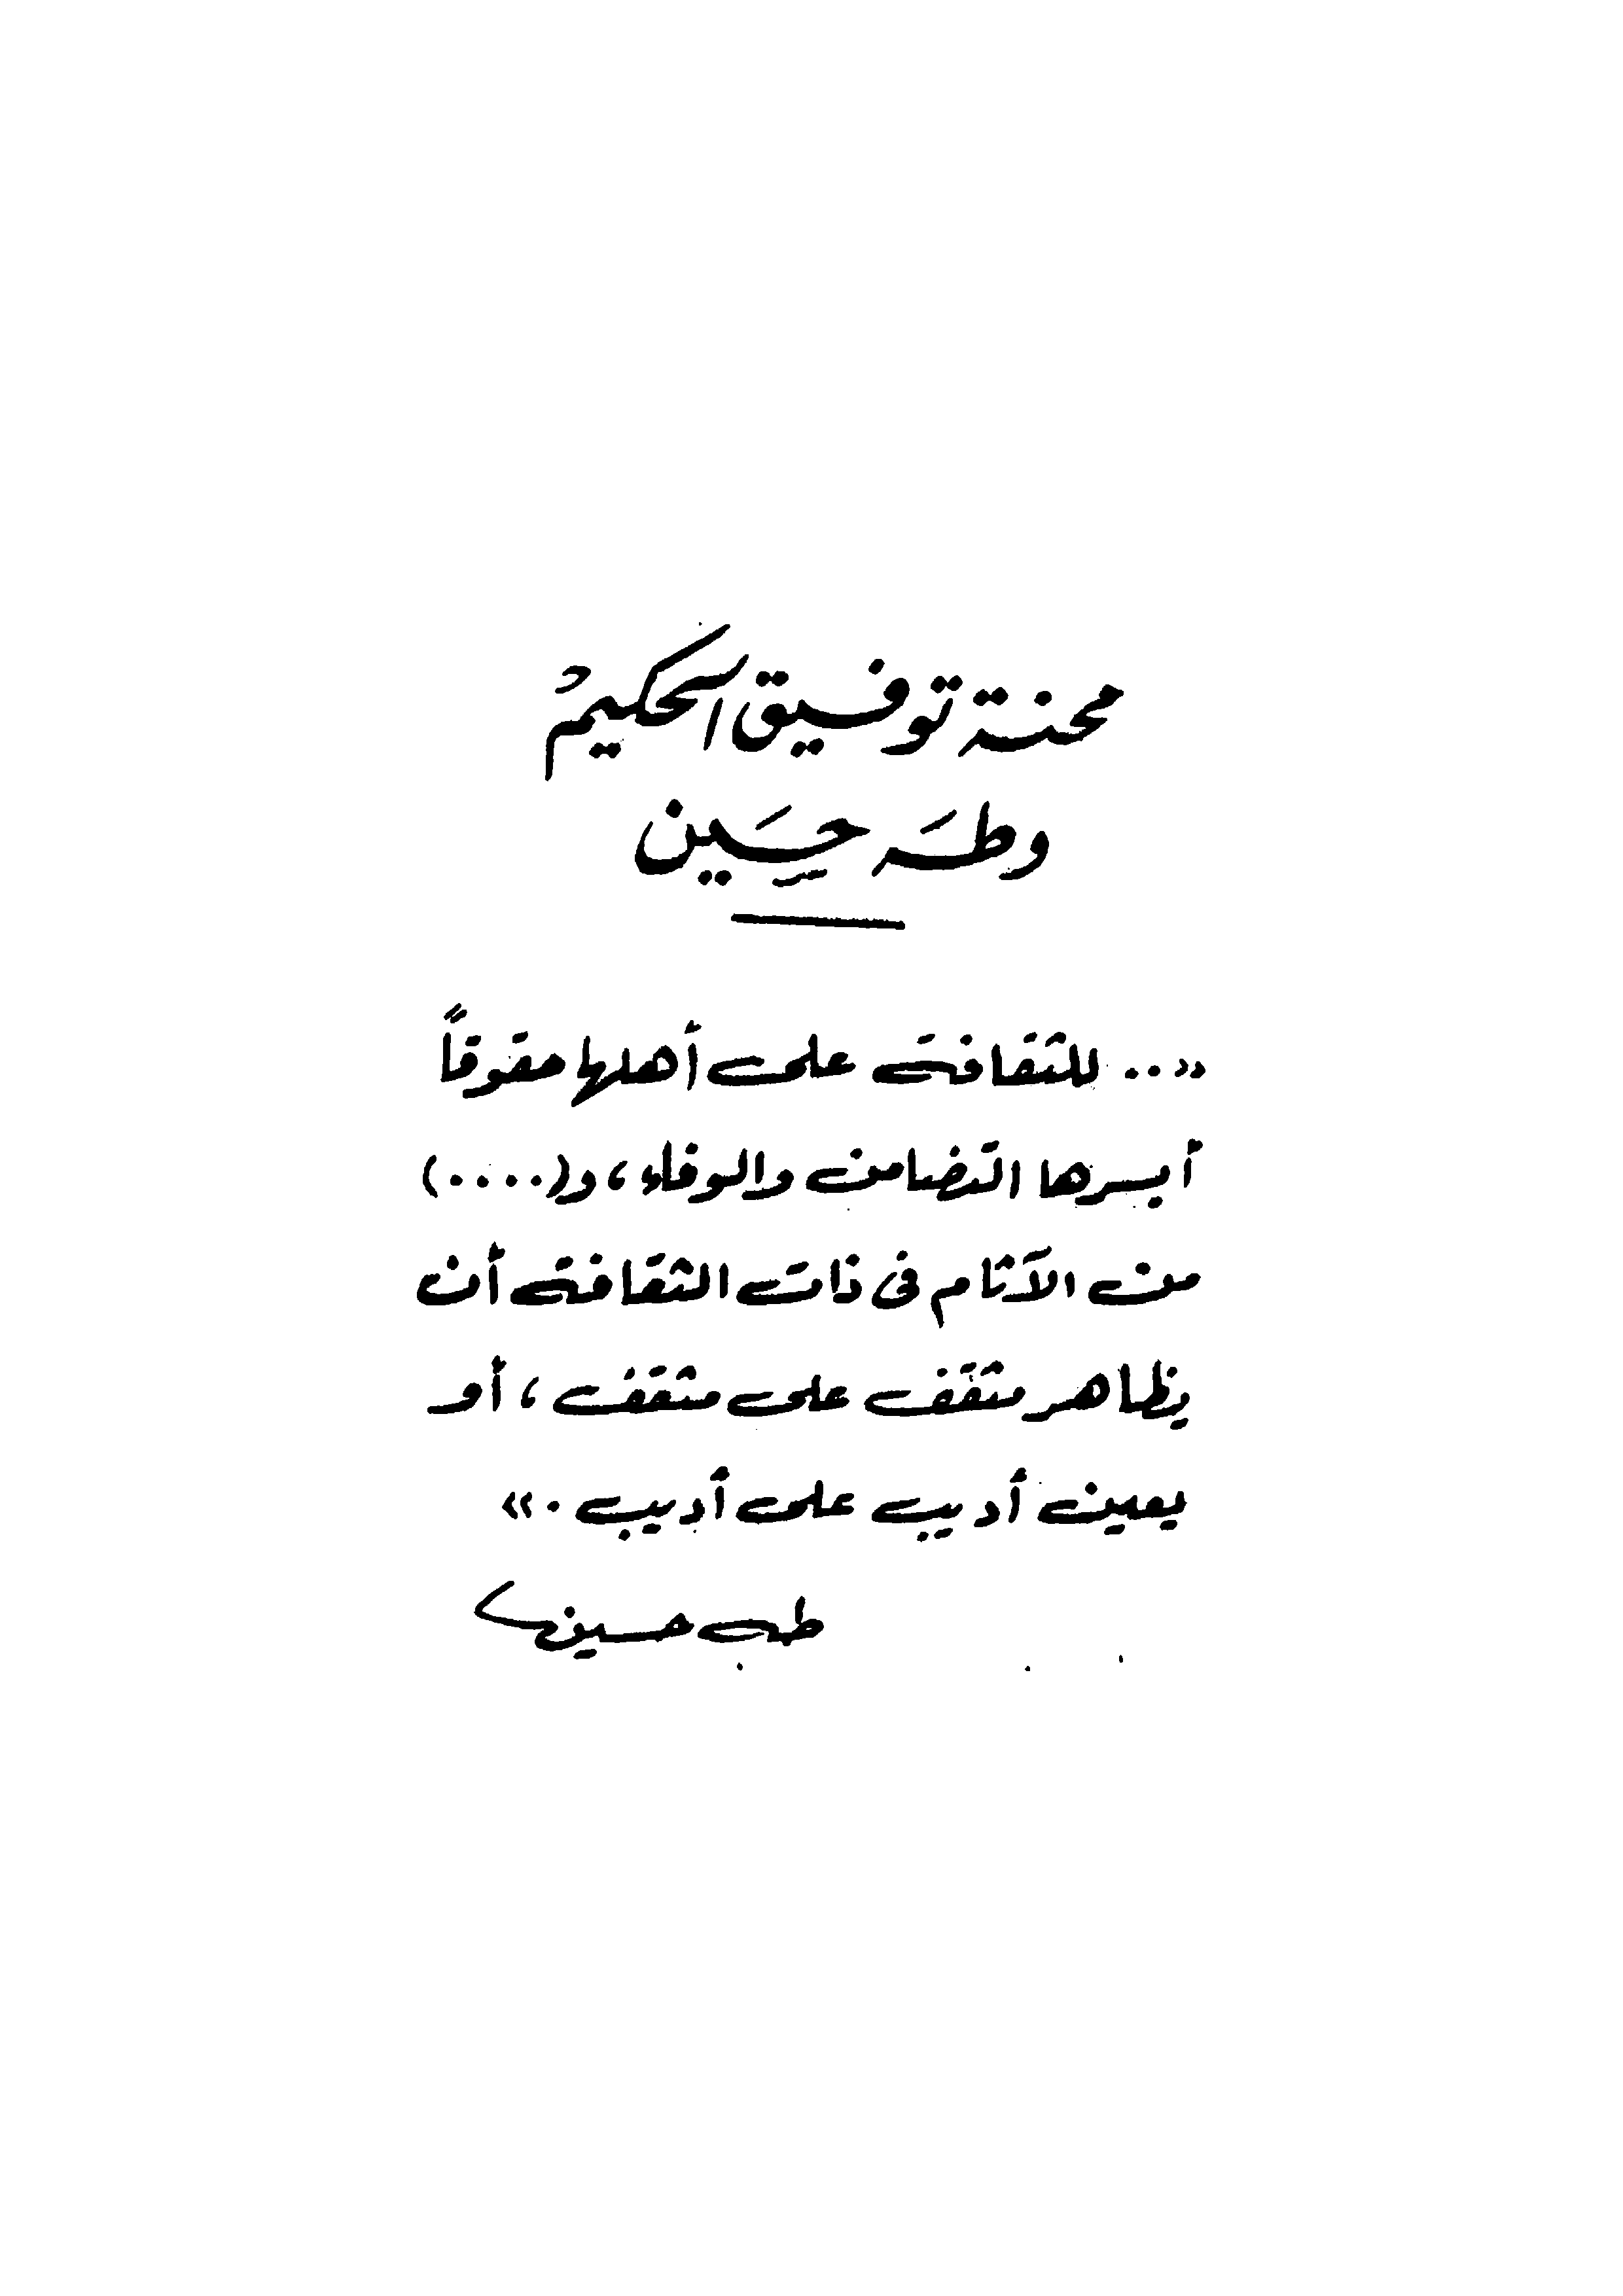 محنة توفيق الحكيم
وطه حسين
«.. للثقافة على أهلها حقوقاً
أيسرها التضامن والوفاء ، و(....)
من الآثام فى ذات الثقافة أن
يظاهر مثقف على مثقف ، أو
يعين أديب على أديب . »
طه حسين